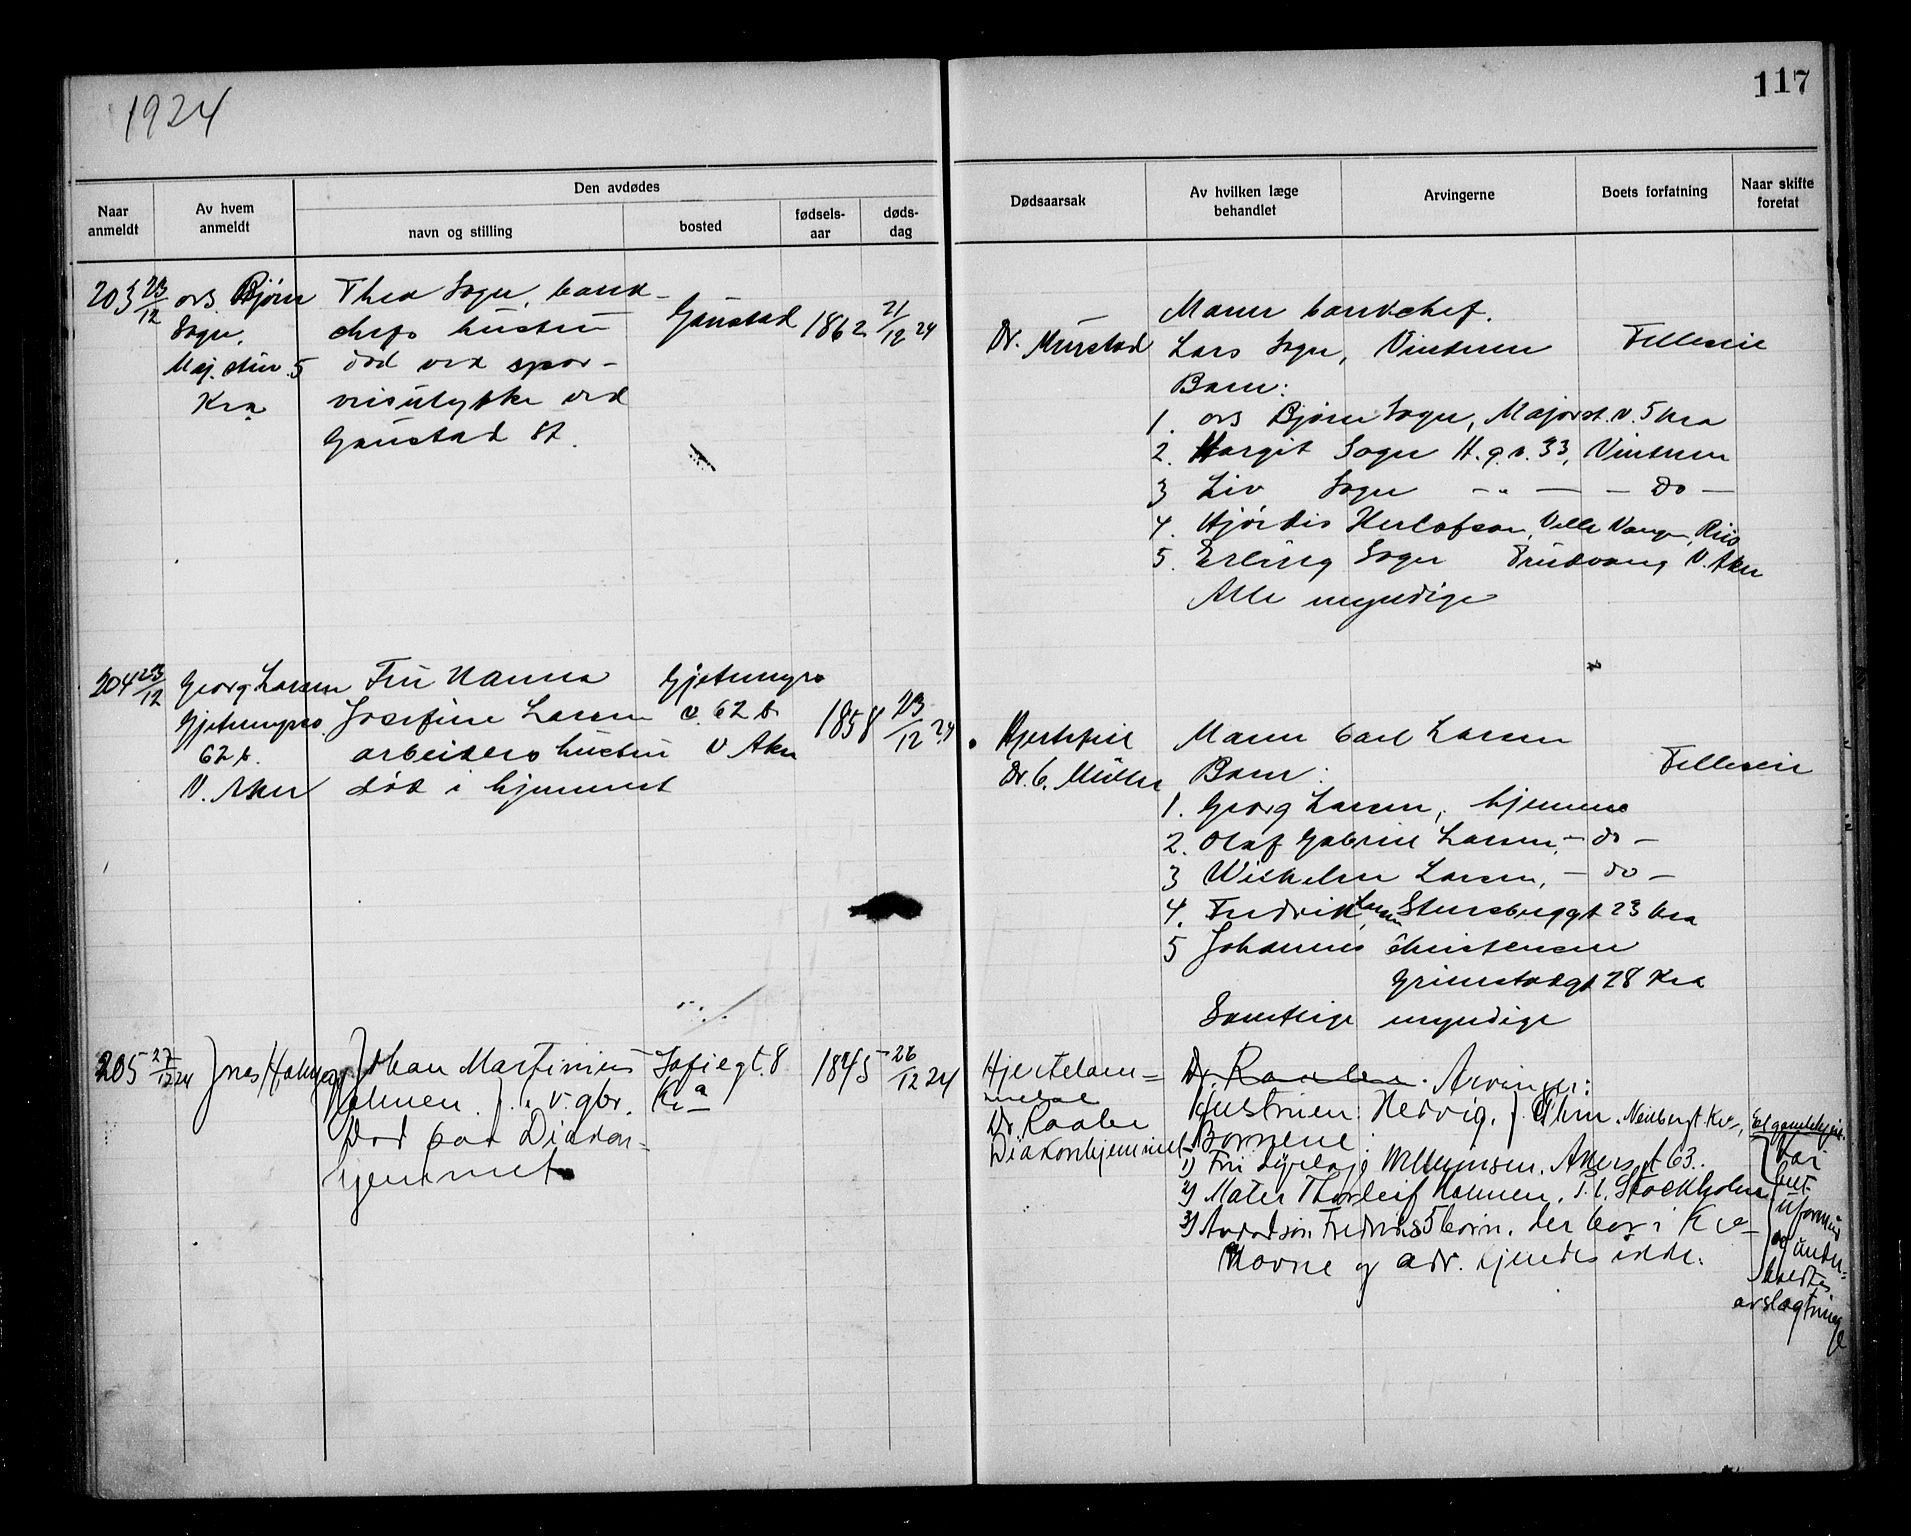 1924
117
Den avdødes
Naar anmeldt
Av hvem anmeldt
navn og stilling
bosted
fødsels-aar
døds-dag
Dødsaarsak
Av hvilken læge behandlet
Arvingerne
Boets forfatning
Naar skifte foretat
203 23/12
ovs. Bjørn
Sogn,
Maj.stuv. 5
Kra
Thea Sogn, bank-
chefs hustru
død ved spor-
veisulykke ved
Gaustad St.
Gaustad
1862
21/12 24
Dr. Mustad
Mann bankchef.
Lars Sogn, Vinderen
Fælleseie
Barn:
1. ovs Bjørn Sogn, Majorst.v. 5 Kra
2. Margit Sogn H.g.v. 33, Vinderen
3 Liv Sogn - " - - do -
4. Hjørdis Herlofson, Villa Vang, Riis
5. Erling Sogn Trudvang V. Aker
Alle myndige
204 23/12
Georg Larsen
Gjetemyrsv.
62 b.
V. Aker
Fru Hanna
Josefine Larsen
arbeiders hustru
død i hjemmet
Gjetemyrs
v. 62 b.
V Aker
1858
23/12 24
Hjertefeil
Dr. C. Müller
Mann Carl Larsen
Barn:
Fælleseie
1. Georg Larsen, hjemme
2. Olaf Gabriel Larsen, - do -
3 Wilhelm Larsen, - do -
4. Fredrik Larsen, Stensberggt 23 Kra
5 Johannes Christensen
Grimstadgt 28 Kra
Samtlige myndige
205 27/12 24
Jns Holmen
Johan Martinius
Holmen. f. v. gbr.
Død paa Diakon-
hjemmet
Sofiegt. 8
Kra
1845
26/12 24
Hjertelam-
melse
Dr. Raabe
Diakonhjemmet
Dr. Raabe. Arvinger:
Hustruen: Hedvig, f.
Børnene:
1) Fru Dyrlæge Willumsen. Akersgt 63.
2) Maler Thorleif Holmen, p.t. Stockholm
3) Avdød søn Fredriks 5 børn, der bor i Kra
Navne og adr. kjendes ikke.
Har
int.
uformue
og under-
holdtes
av slægtninge